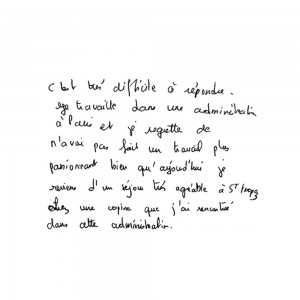 c'est très difficile à répondre.
je travaille dans une administration
à Paris et je regrette de
n'avoir pas fait un travail plus
passionnant bien qu'aujourd'hui je
reviens d'un séjour très agréable à St Tropez
chez une copine que j'ai rencontré
dans cette administration.